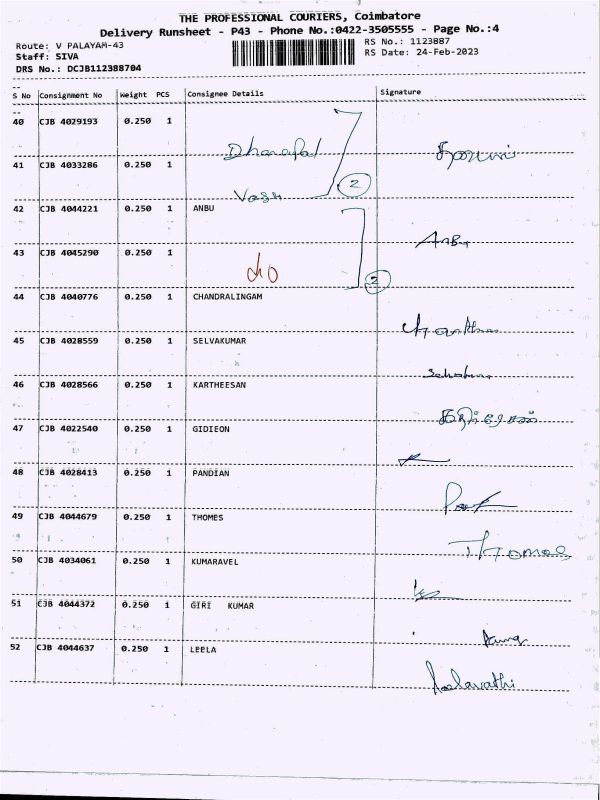 THE PROFESSIONAL COURIERS, Coimbatore
Delivery Runsheet - P43 - Phone No.:0422-3505555 - Page No.:4
Route: V PALAYAM-43
RS No.: 1123887
Staff: SIVA
RS Date: 24-Feb-2023
DRS No.: DCJB112388704
S No Consignment No Weight PCS Consignee Details Signature
40 CJB 4029193 0.250 1
Dhanapal
41 CJB 4033286 0.250 1
Vasu 2
42 CJB 4044221 0.250 1 ANBU
Anbu
43 CJB 4045290 0.250 1
do 2
44 CJB 4040776 0.250 1 CHANDRALINGAM
45 CJB 4028559 0.250 1 SELVAKUMAR
46 CJB 4028566 0.250 1 KARTHEESAN
47 CJB 4022540 0.250 1 GIDIEON
48 CJB 4028413 0.250 1 PANDIAN
49 CJB 4044679 0.250 1 THOMES
Thomas
50 CJB 4034061 0.250 1 KUMARAVEL
51 CJB 4044372 0.250 1 GIRI KUMAR
52 CJB 4044637 0.250 1 LEELA
Leelavathi